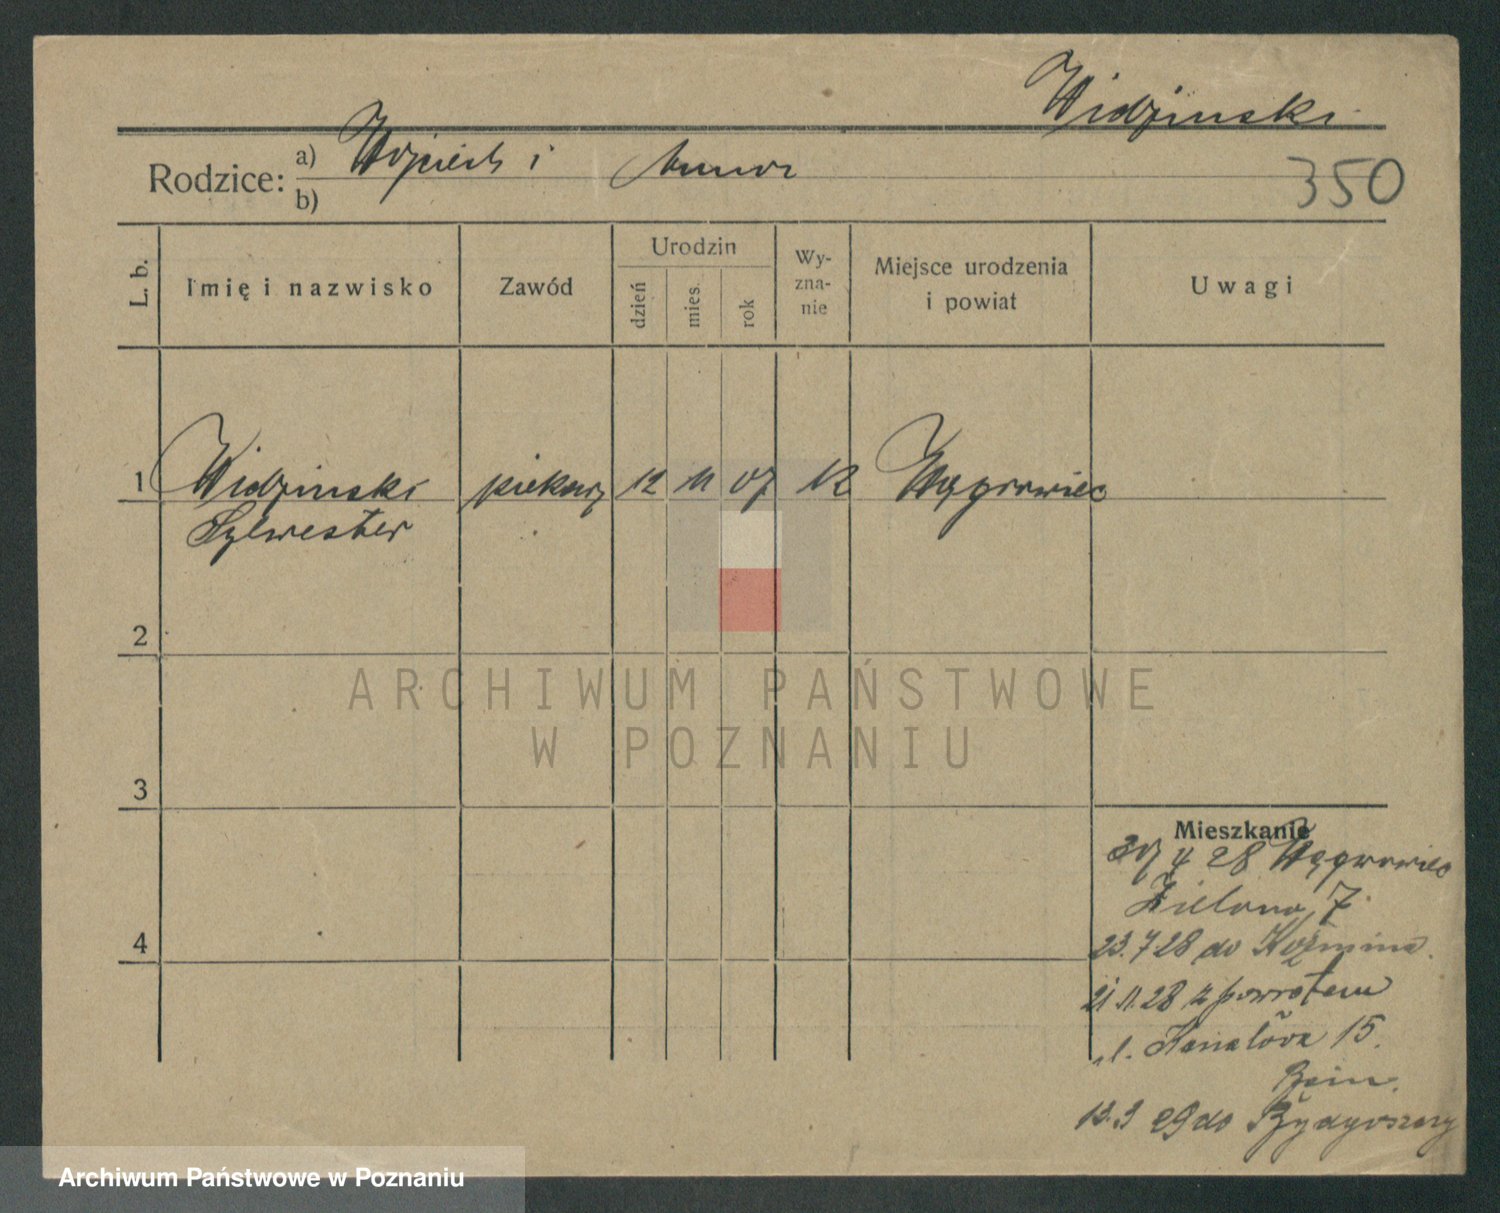 Widziński
Rodzice:
a) Wojciech i Anna
b)
350
L. b.
Imię i nazwisko
Zawód
Urodzin
dzień
mies.
rok
Wy-
zna-
nie
Miejsce urodzenia
i powiat
Uwagi
1 Widziński piekarz 12 11 07 Wągrowiec
Sylwester
2
3
4
Mieszkanie
4 28 Wągrowiec
Zielona 7
23.7 28 do Koźmina.
21 11.28 z powrotem
ul. 15.
29 do Bydgoszczy
ARCHIWUM PAŃSTWOWE
W POZNANIU
Archiwum Państwowe w Poznaniu